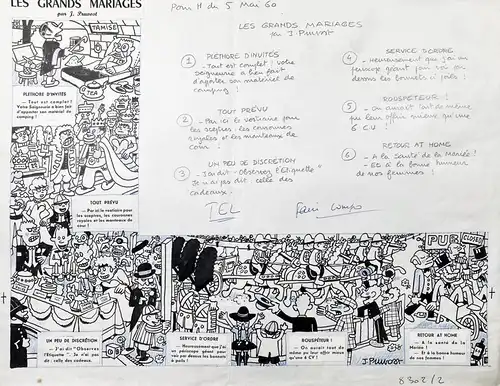 LES GRANDS MARIAGES
par J. Pruvost
TAMISE
TEA
PLÉTHORE D'INVITÉS
— Tout est complet ! Votre Seigneurie a bien fait d'apporter son matériel de camping !
TOUT PRÉVU
— Par ici le vestiaire pour les sceptres, les couronnes royales et les manteaux de cour !
UN PEU DE DISCRÉTION
— J'ai dit "Observez l'Etiquette". Je n'ai pas dit : celle des cadeaux.
SERVICE D'ORDRE
— Heureusement que j'ai un périscope géant pour voir par dessus les bonnets à poils !
ROUSPÉTEUR !
— On aurait tout de même pu leur offrir mieux qu'une 6 CV !
J. Pruvost
PUB
CLOSED
RETOUR AT HOME
— A la santé de la Mariée !
— Et à la bonne humeur de nos femmes !
Pour H du 5 Mai 60
LES GRANDS MARIAGES
par J. Pruvost
1 PLETHORE D'INVITÉS
- Tout est complet ! Votre
seigneurie a bien fait
d'apporter son matériel de
camping !
TOUT PRÉVU
2 - Par ici le vestiaire pour
les sceptres, les couronnes
royales et les manteaux de
cour !
UN PEU DE DISCRETION
3 - J'ai dit "Observez l'Etiquette"
Je n'ai pas dit : celle des
cadeaux.
SERVICE D'ORDRE
4 - Heureusement que j'ai un
périscope géant pour voir par
dessus les bonnets à poils !
ROUSPÉTEUR !
5 - On aurait tout de même
pu leur offrir mieux qu'une
6 C.V !
RETOUR AT HOME
6 - A la Santé de la Mariée !
- Et à la bonne humeur
de nos femmes !